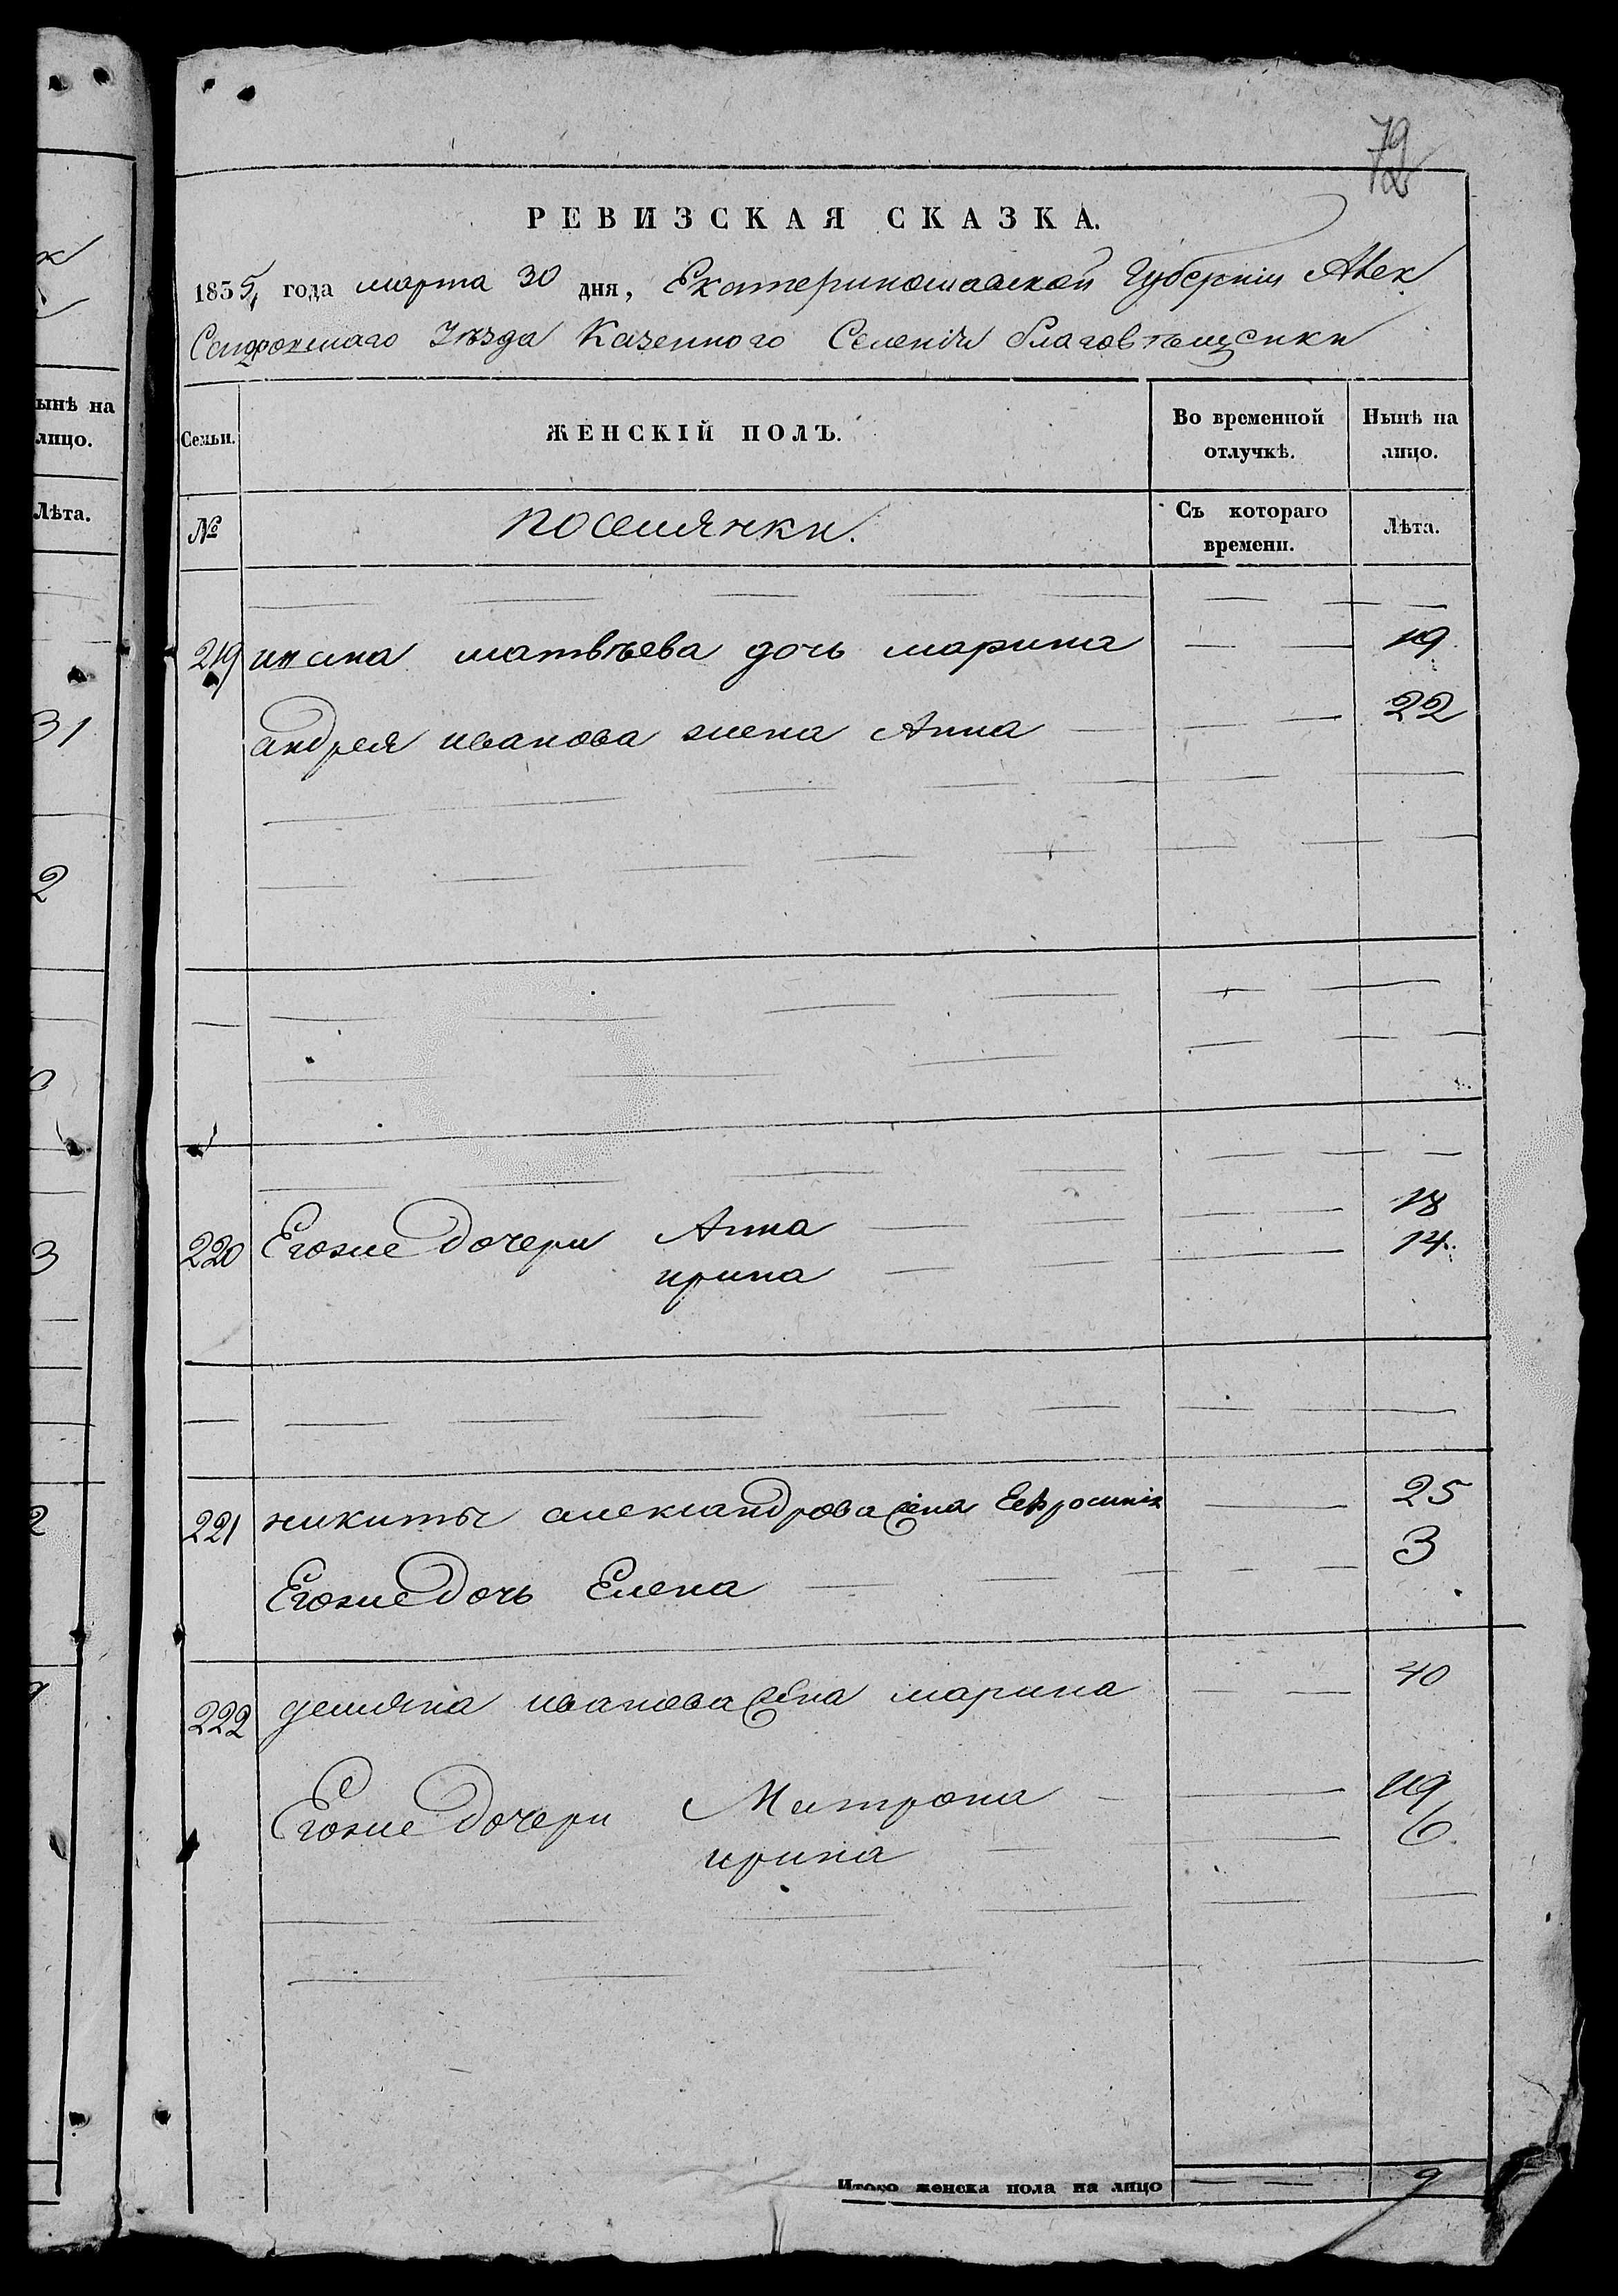 72
РЕВИЗСКАЯ СКАЗКА.
1835 года марта 30 дня, Екатеринославской Губерніи Алек
Сендровскаго Уѣзда Казенного Селенія благовѣщенки
Семьи.
ЖЕНСКІЙ ПОЛЪ.
Во временной
отлучкѣ.
Нынѣ на
лицо.
№
поселянки.
Съ котораго
времени.
Лѣта.
219 матвѣева дочь марина 19
андрея иванова жена Анна 22
220 Егоже дочери Анна 18
ирина 14
221 никиты александрова жена Еефросинія 25
Егоже дочь Елена 3
222 демяна иванова жена марина 40
Егоже дочери Матрона 19
ирина 6
Итого женска пола на лицо 9
ынѣ на
лицо.
Лѣта.
31
2
3
2